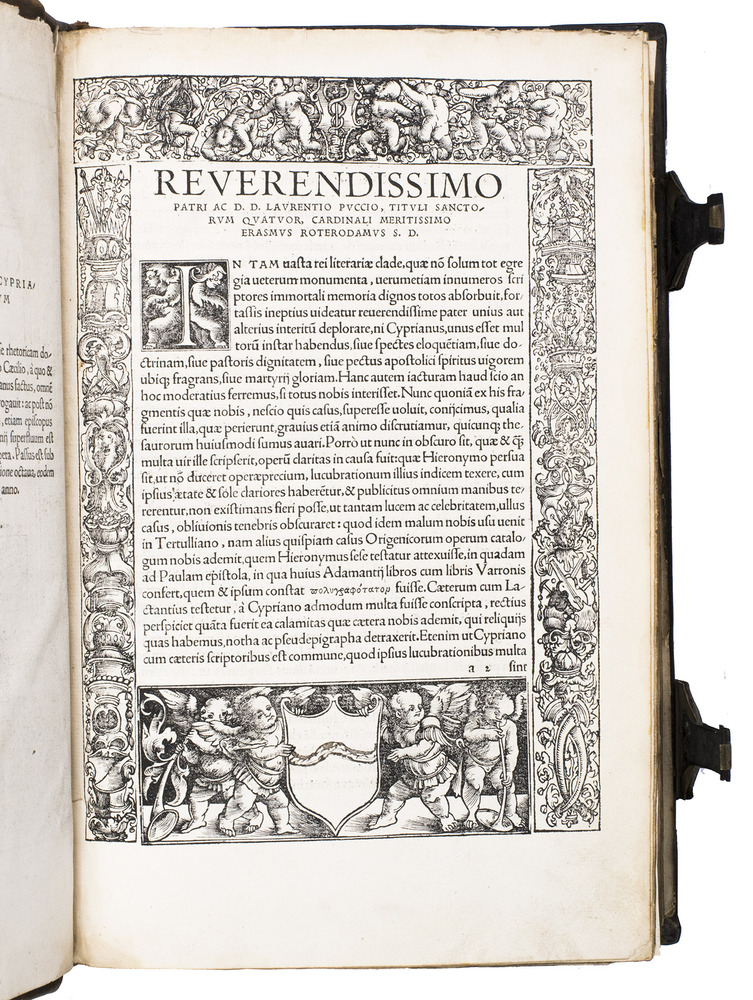 CYPRIA/
VM
se rhetoricam do-
o Cæcilio, à quo &
anus factus, omnē
rogauit: ac post nō
, etiam episcopus
nij superfluum est
pera. Passus est sub
ione octaua, eodem
anno.
REVERENDISSIMO
PATRI AC D. D. LAVRENTIO PVCCIO, TITVLI SANCTO/
RVM QVATVOR, CARDINALI MERITISSIMO
ERASMVS ROTERODAMVS S. D.
IN TAM uasta rei literariæ clade, quæ nō solum tot egre
gia ueterum monumenta, uerumetiam innumeros scri
ptores immortali memoria dignos totos absorbuit, for-
tassis ineptius uideatur reuerendissime pater unius aut
alterius interitū deplorare, ni Cyprianus, unus esset mul
torū instar habendus, siue spectes eloquētiam, siue do-
ctrinam, siue pastoris dignitatem, siue pectus apostolici spiritus uigorem
ubiq; fragrans, siue martyrij gloriam. Hanc autem iacturam haud scio an
hoc moderatius ferremus, si totus nobis interisset. Nunc quoniā ex his fra-
gmentis quæ nobis, nescio quis casus, superesse uoluit, conijcimus, qualia
fuerint illa, quæ perierunt, grauius etiā animo discrutiamur, quicunq; the-
saurorum huiusmodi sumus auari. Porrò ut nunc in obscuro sit, quæ & q̃;
multa uir ille scripserit, operū claritas in causa fuit: quæ Hieronymo persua
sit, ut nō diceret operæprecium, lucubrationum illius indicem texere, cum
ipsius ætate & sole clariores haberētur, & publicitus omnium manibus te-
rerentur, non existimans fieri posse, ut tantam lucem ac celebritatem, ullus
casus, obliuionis tenebris obscuraret: quod idem malum nobis usu uenit
in Tertulliano, nam alius quispiam casus Origenicorum operum catalo-
gum nobis ademit, quem Hieronymus sese testatur attexuisse, in quadam
ad Paulam epistola, in qua huius Adamantij libros cum libris Varronis
confert, quem & ipsum constat πολυγραφότατον fuisse. Cæterum cum La-
ctantius testetur, à Cypriano admodum multa fuisse conscripta, rectius
perspiciet quāta fuerit ea calamitas quæ cætera nobis ademit, qui reliquijs
quas habemus, notha ac pseudepigrapha detraxerit. Etenim ut Cypriano
cum cæteris scriptoribus est commune, quod ipsius lucubrationibus multa
a 2 sint